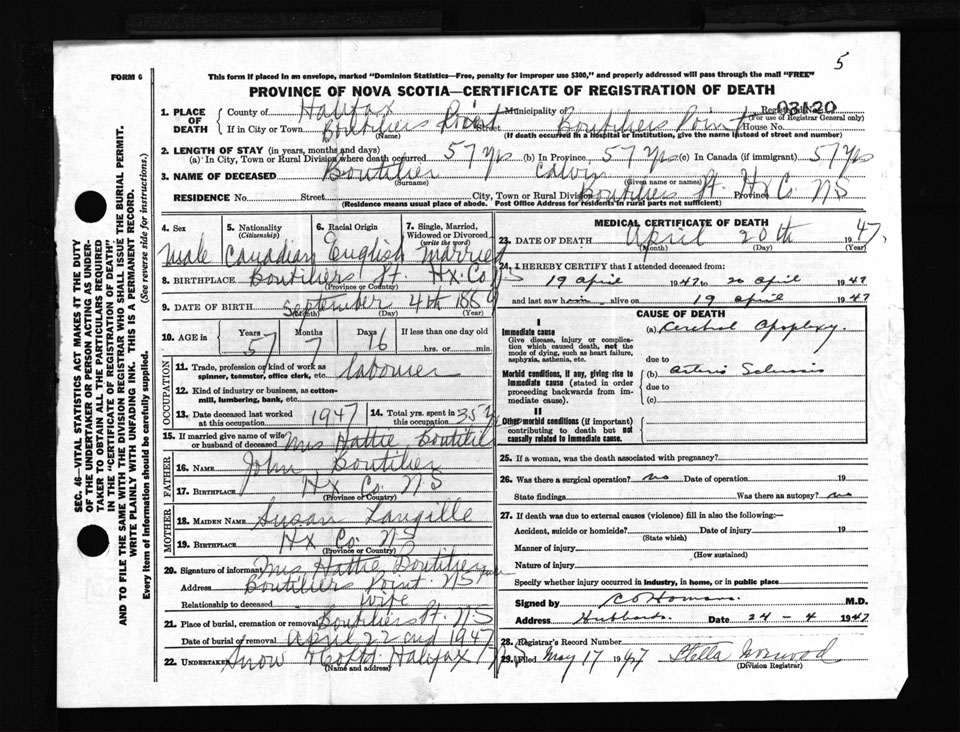 5
FORM 6
This form if placed in an envelope, marked "Dominion Statistics—Free, penalty for improper use $300," and properly addressed will pass through the mail "FREE"
PROVINCE OF NOVA SCOTIA—CERTIFICATE OF REGISTRATION OF DEATH
1. PLACE OF DEATH County of Halifax Municipality of Registered No. 03120
(For use of Registrar General only)
If in City or Town Boutiliers Point Boutiliers Point House No.
(Name) (If death occurred in a hospital or institution, give the name instead of street and number)
2. LENGTH OF STAY (in years, months and days)
(a) In City, Town or Rural Division where death occurred 57 yrs (b) In Province 57 yrs (c) In Canada (if immigrant) 57 yrs
3. NAME OF DECEASED Boutilier Calvin
(Surname) (Given name or names)
RESIDENCE No. Street City, Town or Rural Division Boutiliers Pt. Hx Co Province NS
(Residence means usual place of abode. Post Office Address for residents in rural parts not sufficient)
4. Sex 5. Nationality (Citizenship) 6. Racial Origin 7. Single, Married, Widowed or Divorced (write the word)
male Canadian English married
8. BIRTHPLACE Boutiliers Pt Hx Co NS
(Province or Country)
9. DATE OF BIRTH September 4th 1889
(Month) (Day) (Year)
10. AGE in Years 57 Months 7 Days 16 If less than one day old hrs. or min.
OCCUPATION
11. Trade, profession or kind of work as spinner, teamster, office clerk, etc. labourer
12. Kind of industry or business, as cotton-mill, lumbering, bank, etc.
13. Date deceased last worked at this occupation 1947 14. Total yrs. spent in this occupation 35 y
15. If married give name of wife or husband of deceased Mrs Hattie Boutilier
FATHER
16. NAME John Boutilier
17. BIRTHPLACE Hx Co NS
(Province or Country)
MOTHER
18. MAIDEN NAME Susan Langille
19. BIRTHPLACE Hx Co. NS
(Province or Country)
20. Signature of informant Mrs Hattie Boutilier
Address Boutiliers Point. NS
Relationship to deceased wife
21. Place of burial, cremation or removal Boutiliers Pt. NS
Date of burial or removal April 22 and 1947
22. UNDERTAKER Snow & Co Ltd. Halifax NS
(Name and address)
MEDICAL CERTIFICATE OF DEATH
23. DATE OF DEATH April 20th 1947.
(Month) (Day) (Year)
24. I HEREBY CERTIFY that I attended deceased from:
19 April 1947 to 20 April 1947
and last saw him alive on 19 April 1947
CAUSE OF DEATH
I
Immediate cause
Give disease, injury or complication which caused death, not the mode of dying, such as heart failure, asphyxia, asthenia, etc.
(a) Cerebral Apoplexy.
due to
Morbid conditions, if any, giving rise to immediate cause (stated in order proceeding backwards from immediate cause).
(b) Arterio Sclerosis
due to
(c)
II
Other morbid conditions (if important) contributing to death but not causally related to immediate cause.
25. If a woman, was the death associated with pregnancy?
26. Was there a surgical operation? no Date of operation 19
State findings Was there an autopsy? no
27. If death was due to external causes (violence) fill in also the following:—
Accident, suicide or homicide? Date of injury 19
(State which)
Manner of injury
(How sustained)
Nature of injury
Specify whether injury occurred in industry, in home, or in public place
Signed by M.D.
Address Hubbards Date 24 - 4 1947
28. Registrar's Record Number
29. Filed May 17 1947 Stella
(Division Registrar)
SEC. 46—VITAL STATISTICS ACT MAKES IT THE DUTY
OF THE UNDERTAKER OR PERSON ACTING AS UNDER-
TAKER TO OBTAIN ALL THE PARTICULARS REQUIRED
IN THE "CERTIFICATE OF REGISTRATION OF DEATH"
AND TO FILE THE SAME WITH THE DIVISION REGISTRAR WHO SHALL ISSUE THE BURIAL PERMIT.
WRITE PLAINLY WITH UNFADING INK. THIS IS A PERMANENT RECORD.
Every item of Information should be carefully supplied. (See reverse side for instructions.)